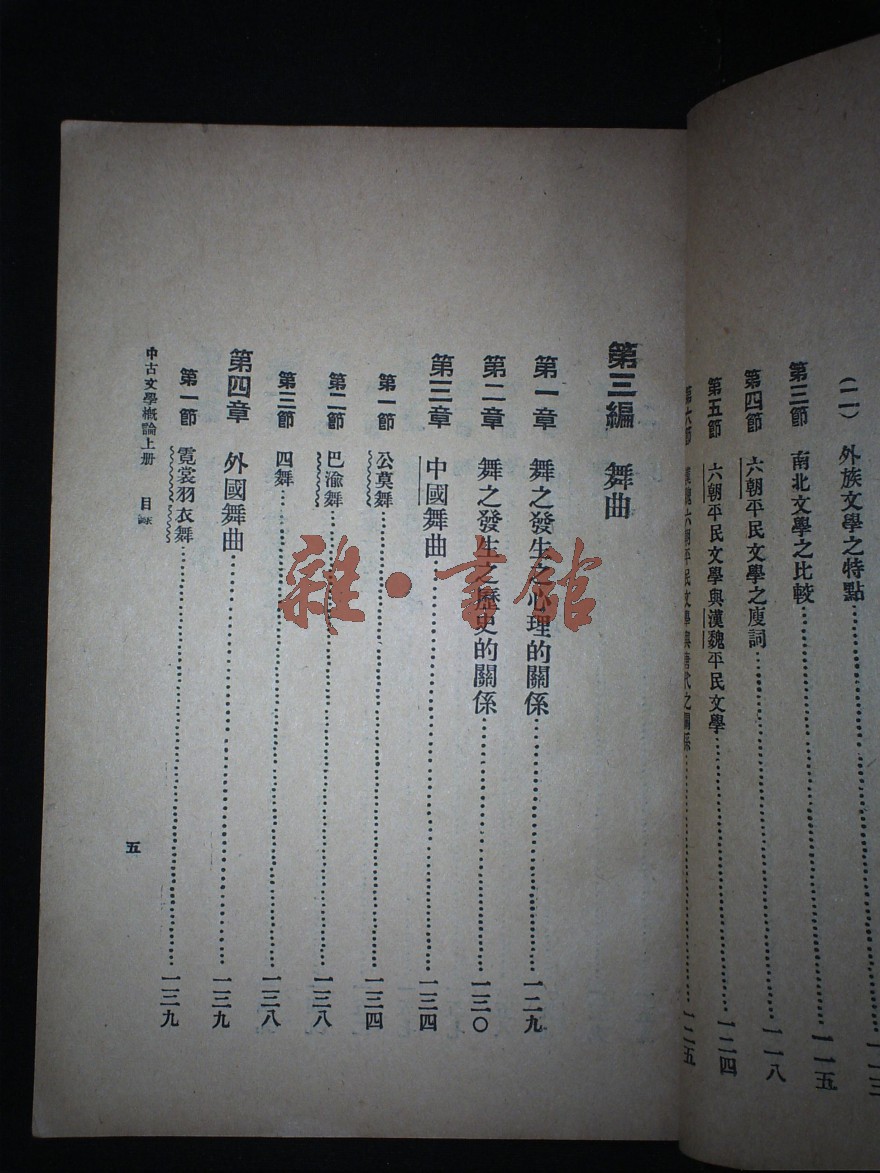 (二) 外族文學之特點……一一三
第三節 南北文學之比較……一一五
第四節 六朝平民文學之廋詞……一一八
第五節 六朝平民文學與漢魏平民文學……一二四
第六節 漢魏六朝平民文學與唐代之關係……一二五
第三編 舞曲
第一章 舞之發生之心理的關係……一二九
第二章 舞之發生之歷史的關係……一三〇
第三章 中國舞曲……一三四
第一節 公莫舞……一三四
第二節 巴渝舞……一三八
第三節 四舞……一三八
第四章 外國舞曲……一三九
第一節 霓裳羽衣舞……一三九
中古文學概論上册 目錄
五
雜·書館